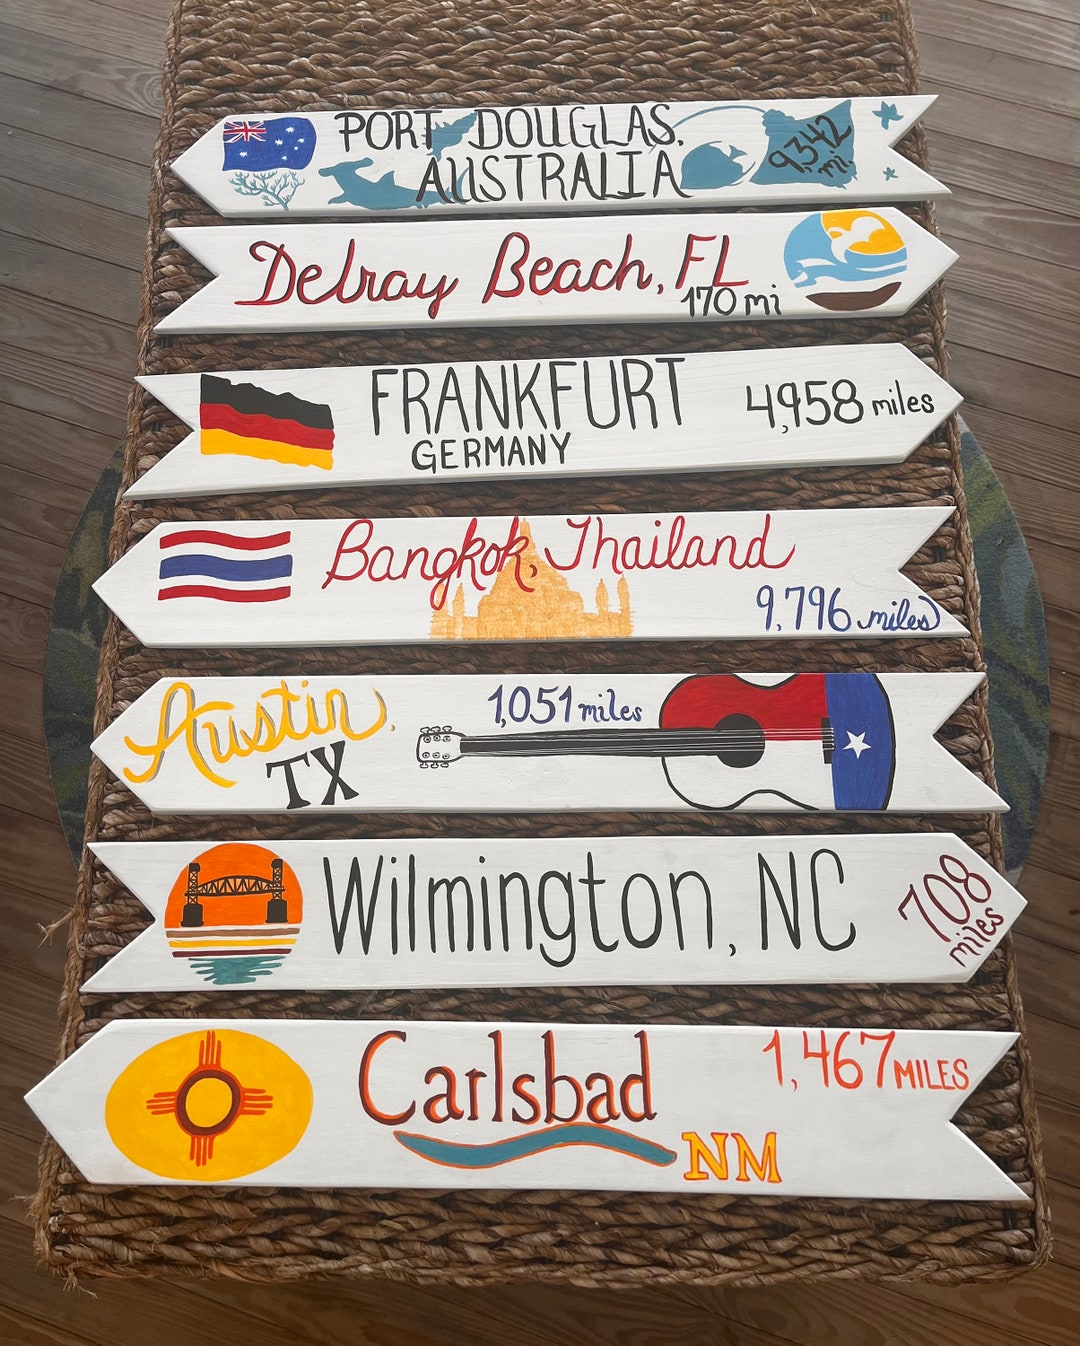 PORT DOUGLAS,
AUSTRALIA
9,342
mi.
Delray Beach, FL
170 mi
FRANKFURT
GERMANY
4,958 miles
Bangkok, Thailand
9,796 miles
Austin,
TX
1,051 miles
Wilmington, NC
708
miles
Carlsbad
NM
1,467 MILES